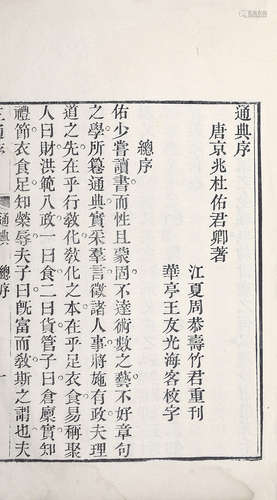 通典序
唐京兆杜佑君卿著
江夏周恭壽竹君重刊
華亭王友光海客校字
總序
佑少嘗讀書而性且蒙固不達術數之藝不好章句
之學所纂通典實采羣言徵諸人事將施有政夫理
道之先在乎行敎化敎化之本在乎足衣食易稱聚
人曰財洪範八政一曰食二曰貨管子曰倉廩實知
禮節衣食足知榮辱夫子曰旣富而敎斯之謂也夫
三通序
通典
總序
一